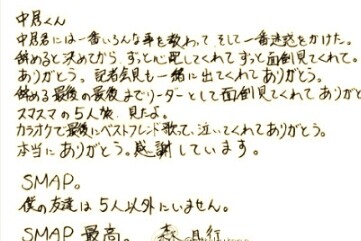 中居くん
中居君には一番いろんな事を教わって、そして一番迷惑をかけた。
辞めると決めてから、ずっと心配してくれて ずっと面倒見てくれて。
ありがとう。記者会見も一緒に出てくれてありがとう。
辞める最後の最後までリーダーとして面倒見てくれて ありがと
スマスマの5人旅 見たよ。
カラオケで最後にベストフレンド歌って、泣いてくれてありがとう。
本当に ありがとう。感謝しています。
SMAP。
僕の友達は 5人以外にいません。
SMAP 最高。 森 且行